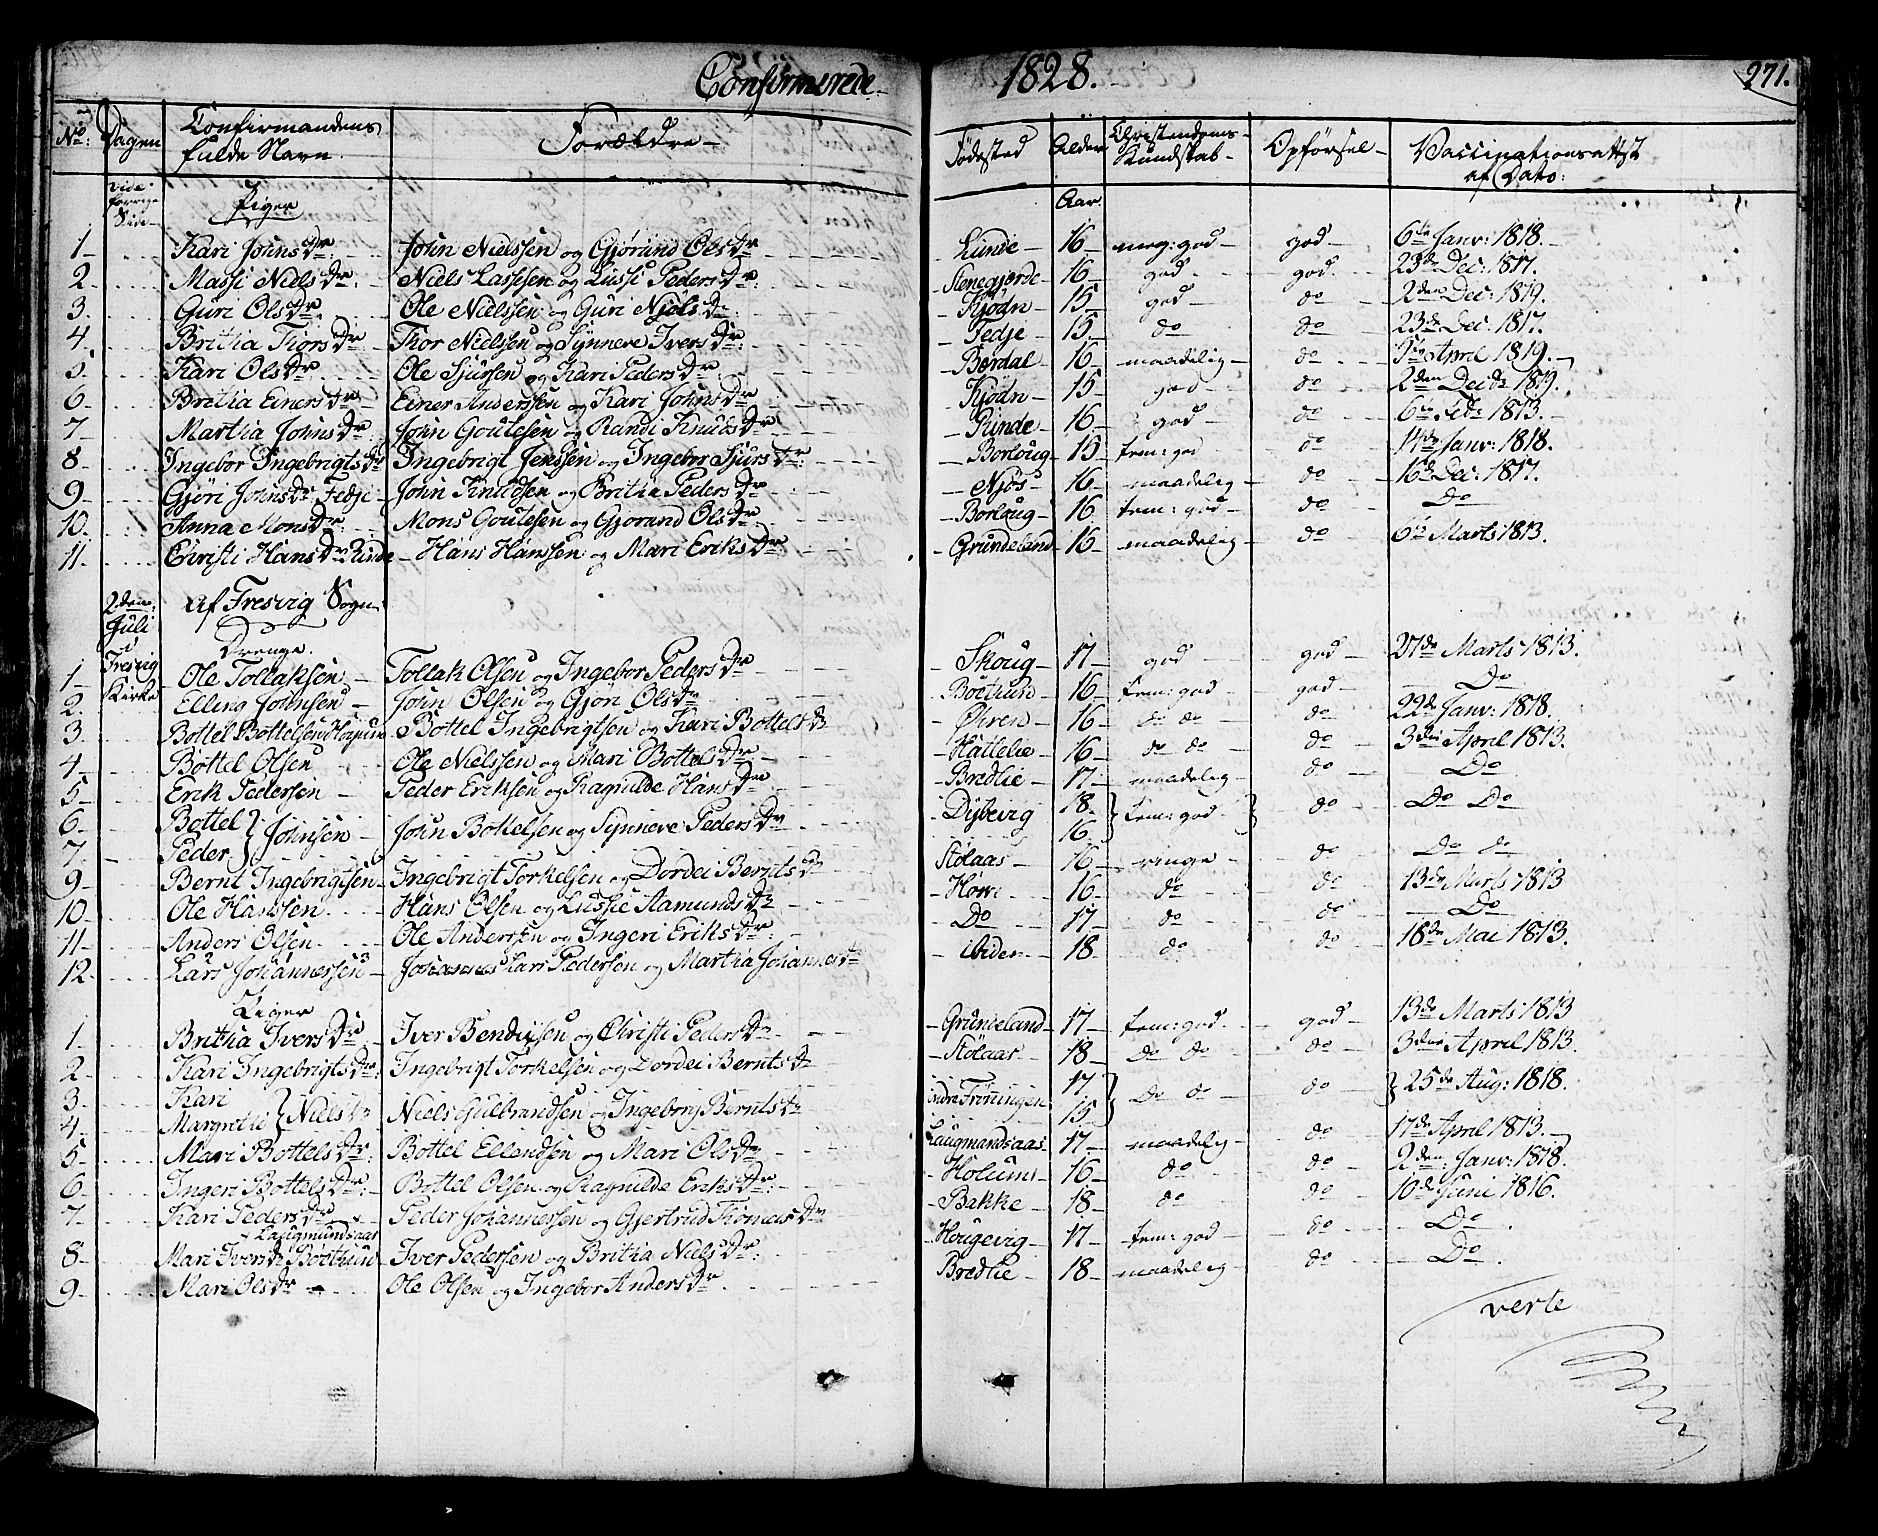 Confirmerede 1828. 271.
No: Dagen Confirmandens fulde Navn. Forældre Fødested Alder Christendoms Kundskab Opførsel Vaccinationsattst af Dato:
vide forrige Side Piger Aar
1 Kari JohnsDr: John Nielssen og Gjørund OlsDr Lunde 16 meg: god god 6te Janv: 1818.
2 Massi NielsDr: Niels Lassesen og Lussi PedersDr: Stenegjerde 16 god god. 23de Dec: 1817.
3. Guri OlsDr: Ole Nielssen og Guri NjølsDr: Kjødn 15 god do 2den Dec: 1819.
4. Britha ThorsDr Thor Nielsen og Synneve IversDr: Fedje 15. do do 23de Dec: 1817.
5. Kari OlsDr: Ole Sjursen og Kari PedersDr Berdal 16 maadelig do April 1819.
6 Britha EinersDr Einer Anderssen og Kari JohnsDr Kjødn 15 god do 2den Decbr 1819.
7 Martha JohnsDr: John Goutesen og Randi KnudsDr Rinde 16 god do 6te Febr 1813.
8 Ingebor IngebrigtsDr Ingebrigt Jenssen og Ingebor SjursDr: Borloug 15 tem: god do 14de Janv: 1818.
9 Gjøri JohnsDr Fedje John Knudsen og Britha PedersDr Njøs 16 maadelig do 16de Dec: 1817.
10. Anna MonsDr. Mons Goutesen og Gjørund OlsDr Borloug 16 tem: god do Do
11. Christi HansDr Rinde Hans Hanssen og Mari EriksDr Grundeland 16 maadelig do 6te Marts 1813.
2den Juli i Fresvig Kirke Af Fresvig Sogn
Drenge.
1 Ole Tollaksen Tollak Olsen og Ingebor PedersDr Skoug 17 god god 27de Marts 1813.
2. Elling Johnsen John Olsen og Gjøri OlsDr Boethun 16 tem: god god Do
3. Bottel Bottelsen Bottel Ingebrigtsen og Kari BottelsDr Øiren 16 do do do 22de Janv: 1818.
4. Bottel Olsen Ole Nielssen og Mari BottelsDr Hattelie 16 do do do 3die April 1813.
5 Erik Pedersen Peder Eriksen og Ragnilde HansDr Bredlie 17. maadelig do Do
6 Bottel } Johnsen John Bottelsen og Synneve PedersDr Dybevig 18. } tem: god } do Do Do
7. Peder } 16.
9 Bernt Ingebrigtsen Ingebrigt Torkelsen og Dordei BerntsDr Stølaas 16 ringe do Do do
10. Ole Hanssen Hans Olsen og Lussie AamundsDr Høvi 16 do do 13de Marts 1813
11 Anders Olsen Ole Anderssen og Ingeri EriksDr: Do 17 do do Do
12. Lars Johannessen Johannes Lars Pedersen og Martha JohannesDr ibidem 18. do do 18de Mai 1813.
Piger
1. Britha IversDr Iver Bendixsen og Christi PedersDr Grundeland 17 tem: god god 13de Marts 1813
2 Kari IngebrigtsDr: Ingebrigt Torkelsen og Dordei BerntsDr Stølaas 18 Do Do do 3die April 1813.
3. Kari } NielsDr Niels Gulbrandsen og Ingeborg BerntsDr indre Frøningen 17 } Do do do } 25de Aug: 1818.
4. Margrethe } 15
5 Mari BottelsDr: Bottel Ellendsen og Mari OlsDr Laugmandsaas 17 maadelig do 17de April 1813.
6. Ingeri BottelsDr: Bottel Olsen og Ragnilde EriksDr: Holum 16 do do 2den Janv: 1818.
7 Kari PedersDr Laugmundsaas Peder Johannessen og Gjertrud Bakke 18 do do 10de Juni 1816.
8 Mari IversDr Boethun Iver Pedersen og Britha NielsDr: Hougevig 17 tem: god do Do.
9 Mari OlsDr Ole Olsen og Ingebor AndersDr Bredlie 18 maadelig do Do.
verte